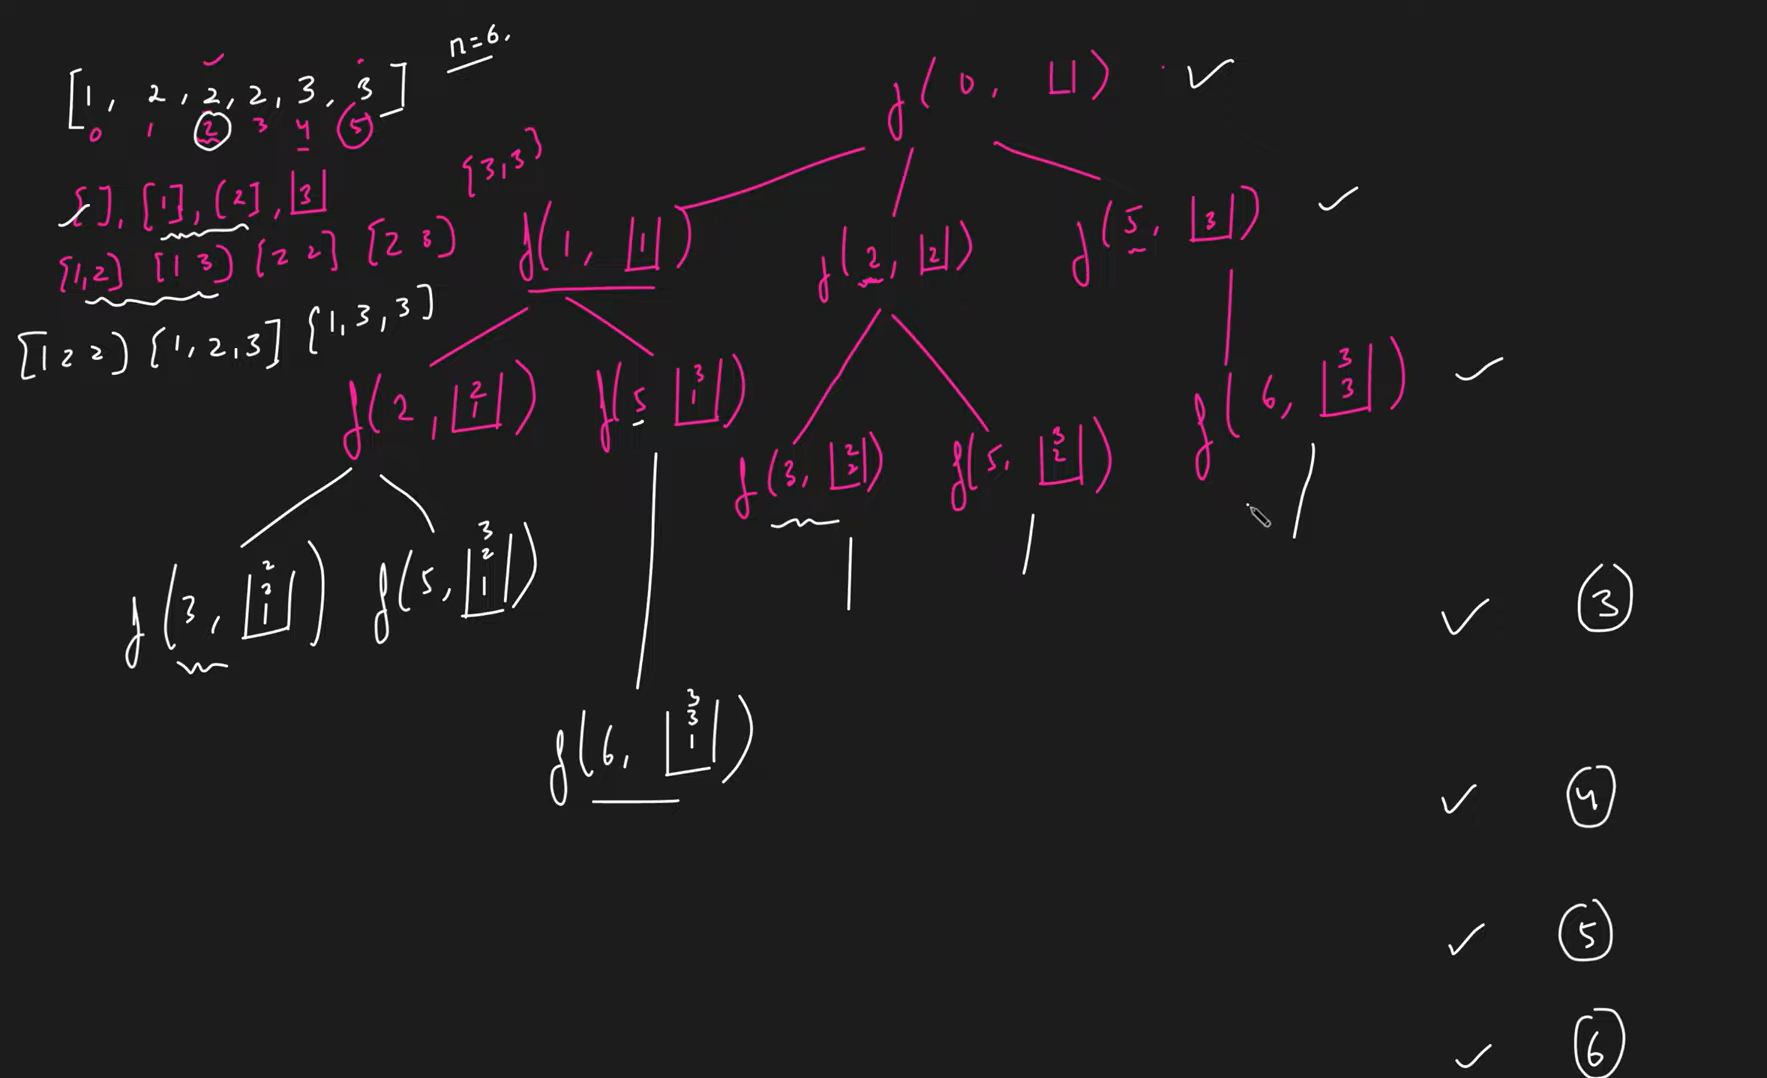 n=6.
[1, 2, 2, 2, 3, 3]
0 1 2 3 4 5
[], [1], [2], [3]
[3,3]
[1,2] [1 3] [2 2] [2 3]
[1 2 2] [1,2,3] [1,3,3]
f(0, [])
f(1, [1]) f(2, [2]) f(5, [3])
f(2, [2 1]) f(5 [3 1]) f(3, [2 2]) f(5, [3 2]) f(6, [3 3])
f(3, [2 2 1]) f(5, [3 2 1])
3
f(6, [3 3 1])
4
5
6